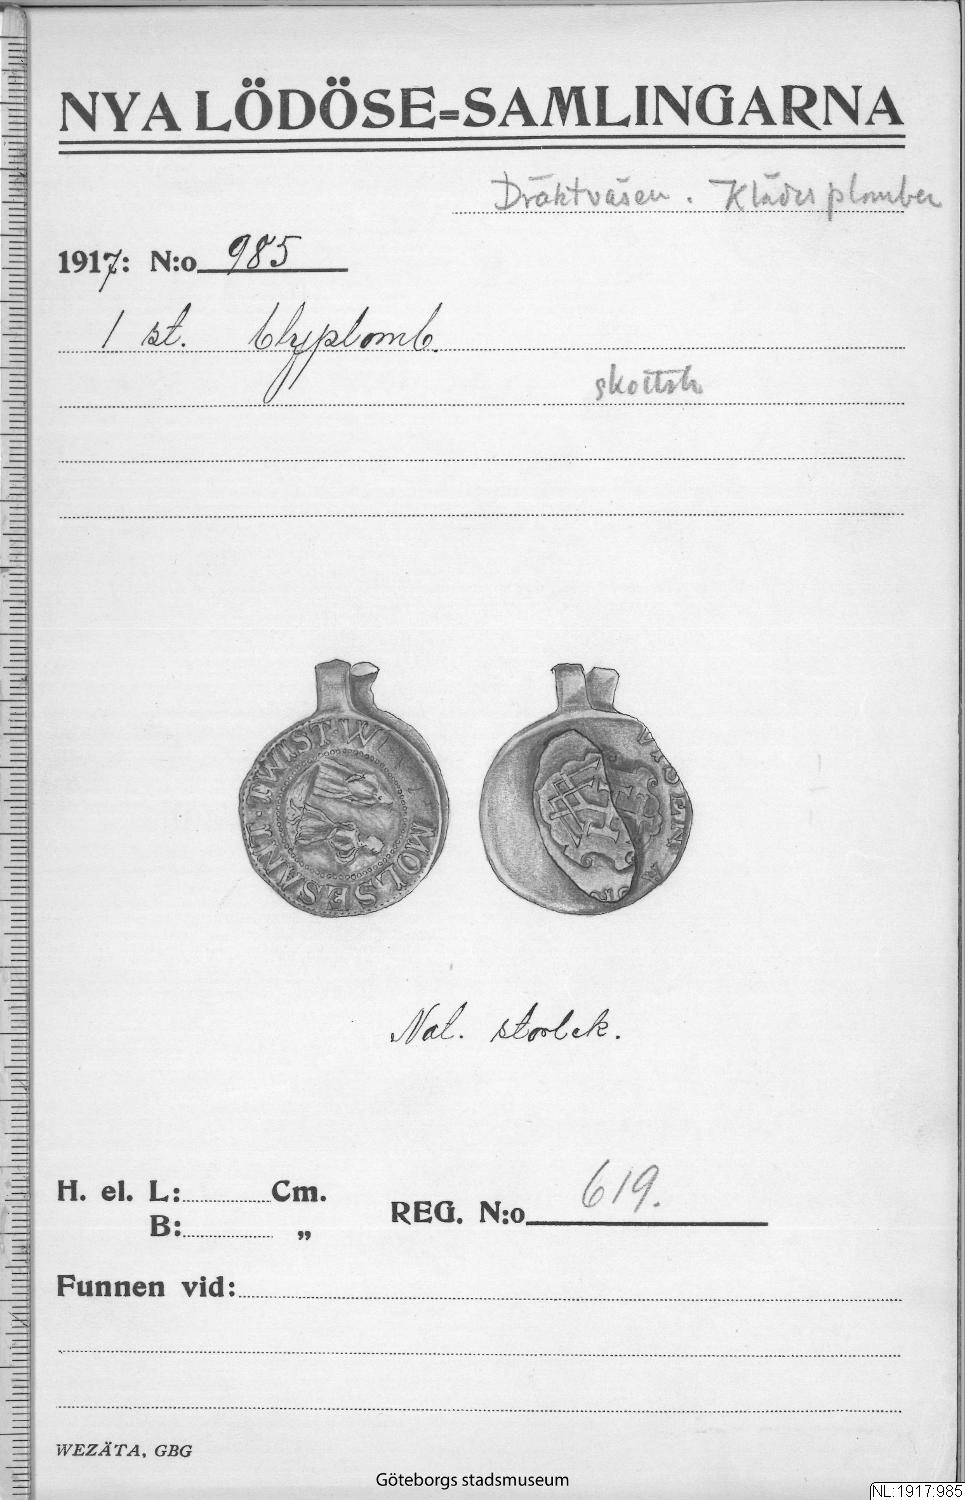 NYA LÖDÖSE=SAMLINGARNA
Dräktväsen. Klädesplomber
1917: N:o 985
1 st. blyplomb.
skottsk
TWIST·W
MOLSESANT
Nat. storlek.
H. el. L: Cm.
B: „
REG. N:o 619.
Funnen vid:
WEZÄTA, GBG
Göteborgs stadsmuseum
NL:1917:985